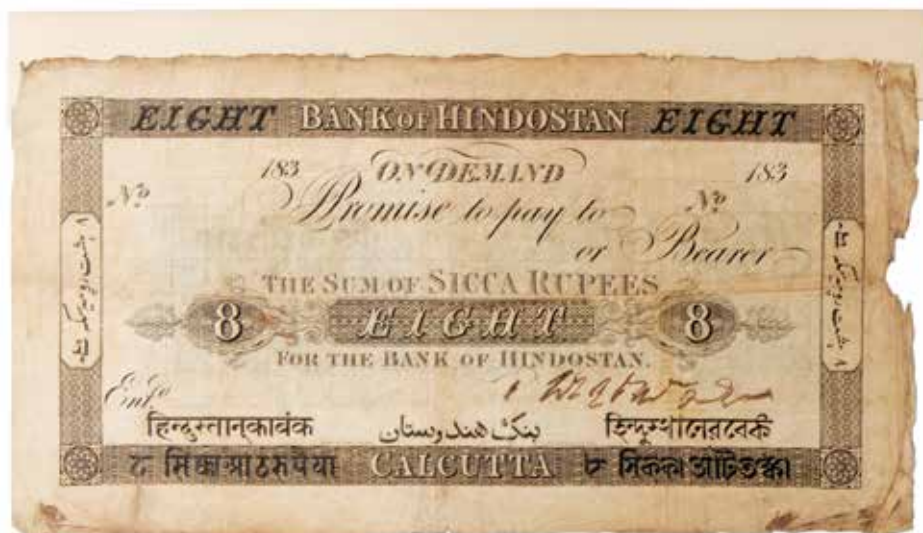 EIGHT BANK OF HINDOSTAN EIGHT
183 ON DEMAND 183
No Promise to pay to No
or Bearer
THE SUM OF SICCA RUPEES
8 EIGHT 8
FOR THE BANK OF HINDOSTAN.
Entd
हिन्दुस्तान्काबंक بنك هندوستان হিন্দুস্থানেরবেংক
८ सिक्का आठ रुपैया CALCUTTA ৮ সিককা আটটঙ্কা